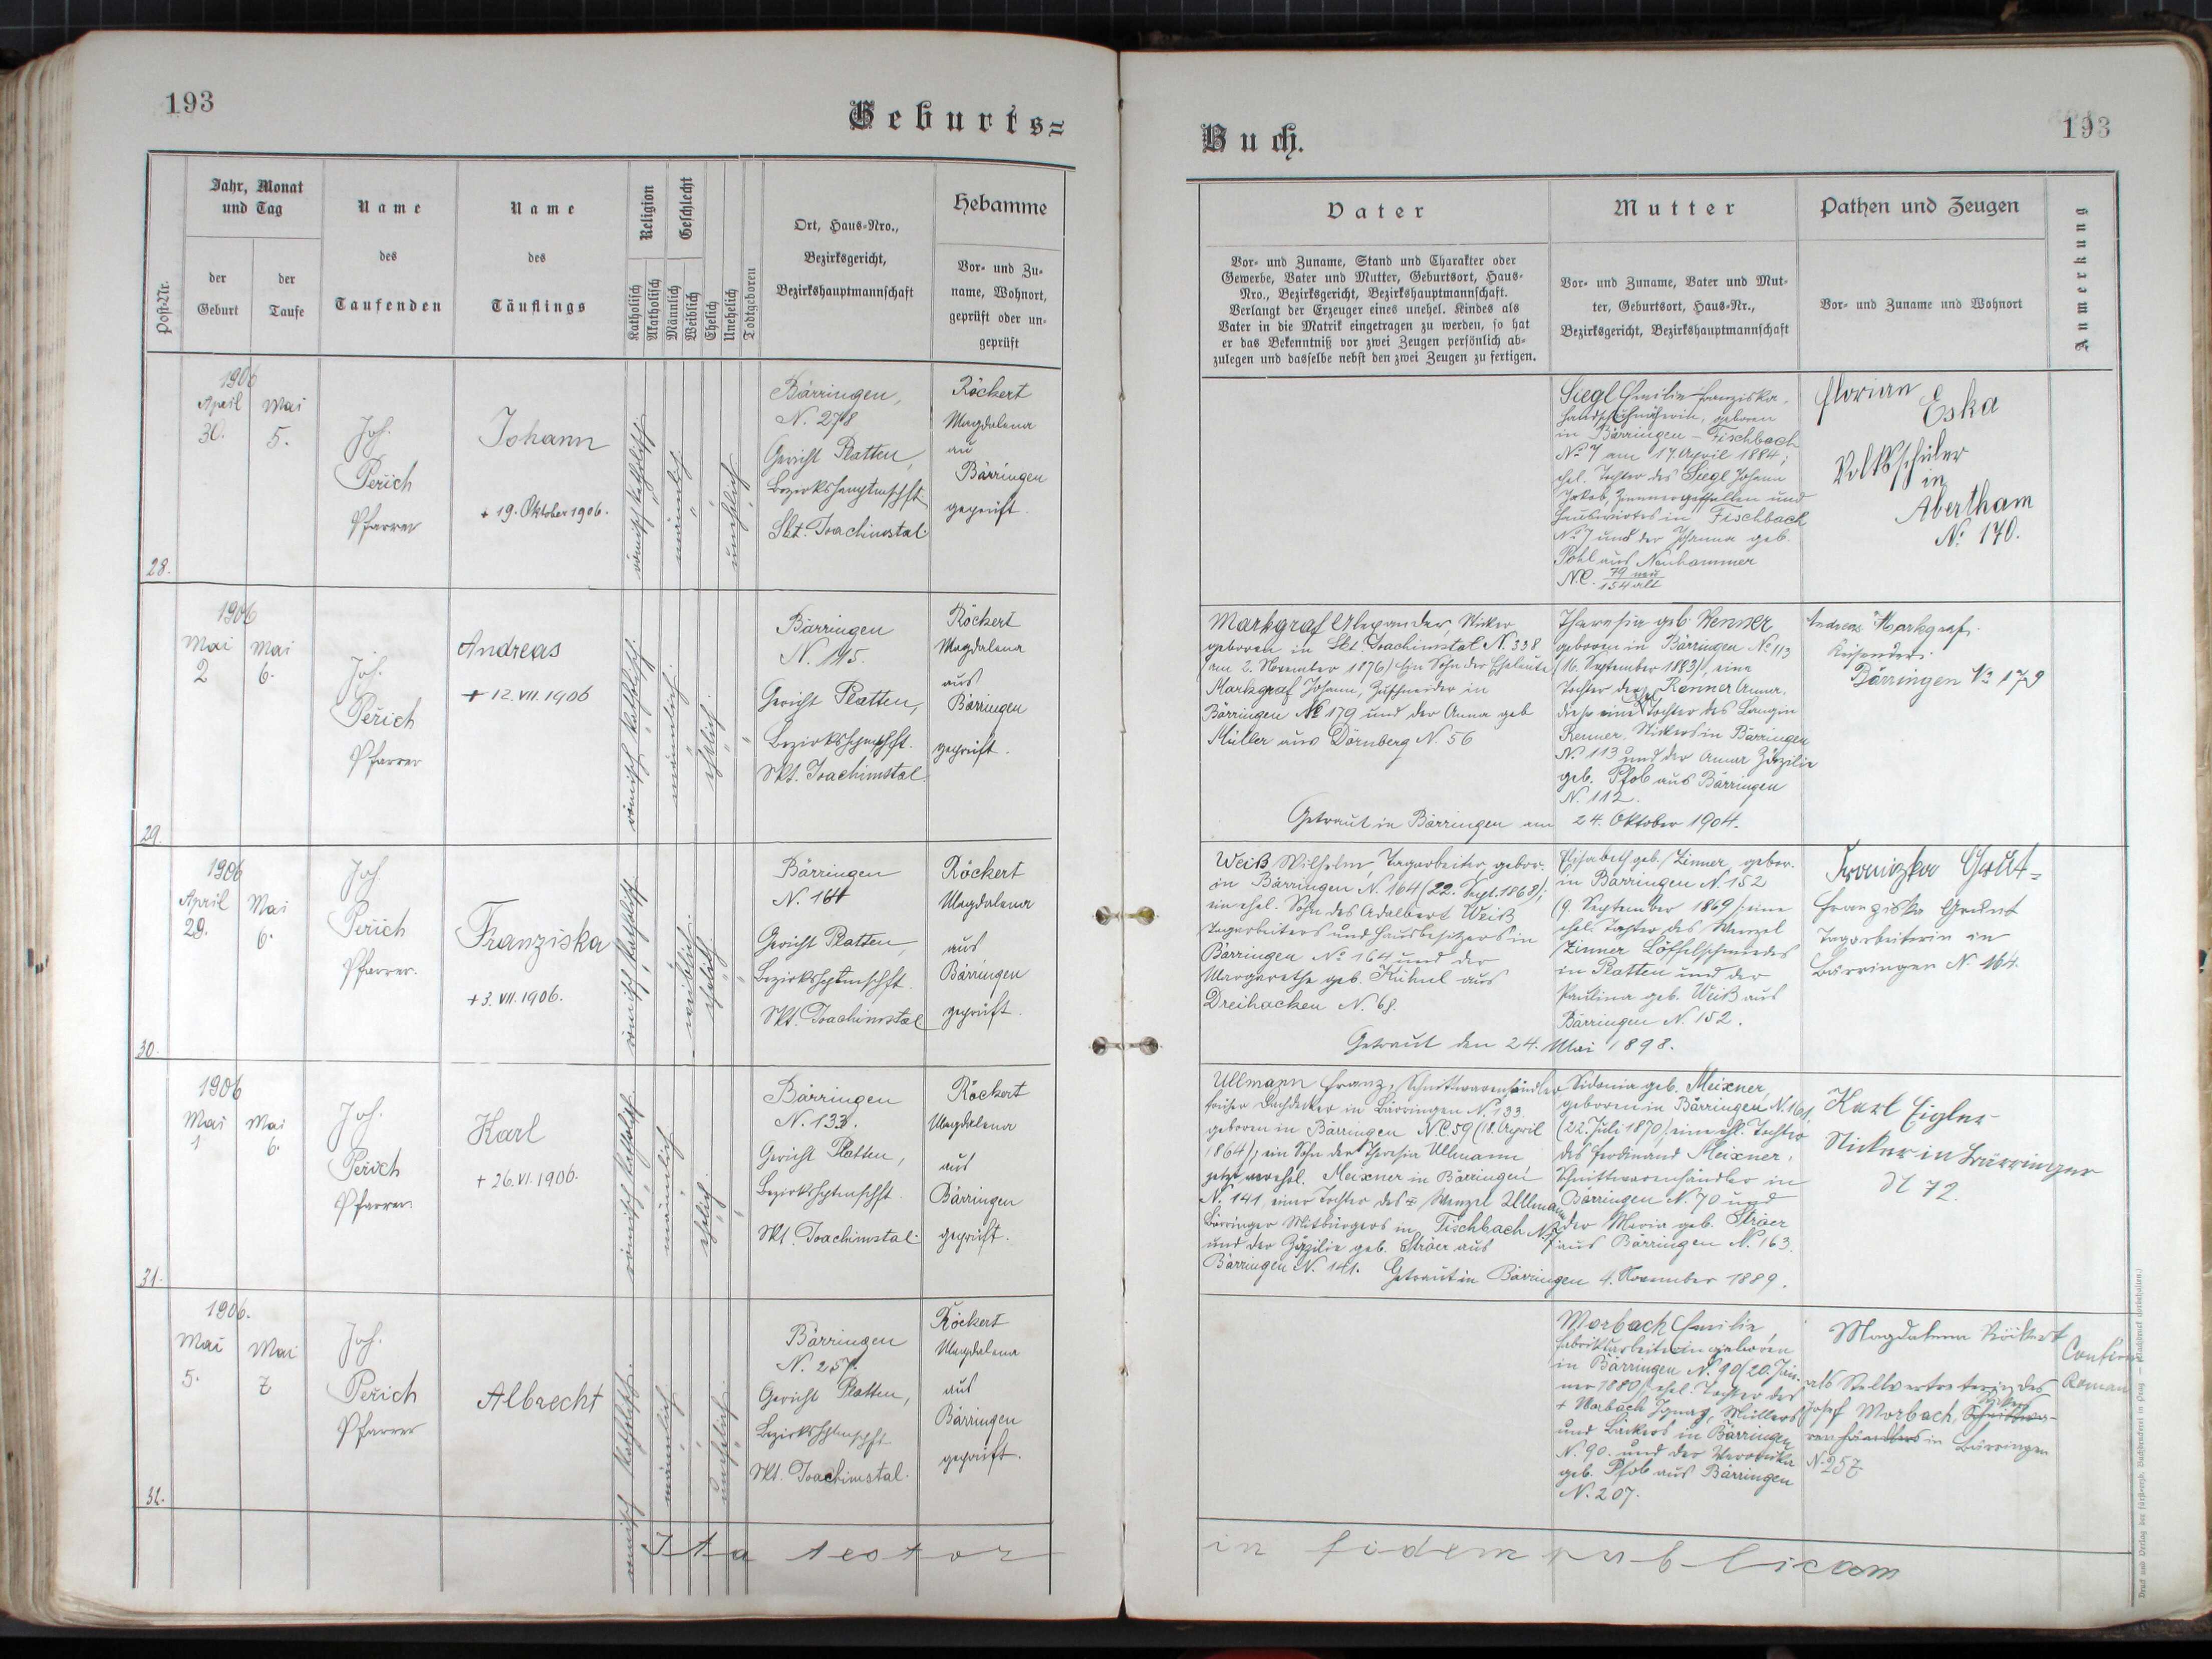 193
Geburts=
Jahr, Monat
und Tag
der
Geburt
der
Taufe
Post-Nr.
Name
des
Taufenden
Name
des
Täuflings
Religion
Katholisch
Akatholisch
Geschlecht
Männlich
Weiblich
Ehelich
Unehelich
Todtgeboren
Ort, Haus-Nro.,
Bezirksgericht,
Bezirkshauptmannschaft
Hebamme
Vor- und Zu-
name, Wohnort,
geprüft oder un-
geprüft
28.
1906
April
30.
Mai
5.
Joh.
Peřich
Pfarrer
Johann
+ 19. Oktober 1906.
römisch katholisch
männlich
unehelich
Bärringen,
N. 278
Gericht Platten,
Bezirkshauptmschft
Skt. Joachimstal
Röckert
Magdalena
au
Bärringen
geprüft.
29.
1906
Mai
2
Mai
6.
Joh.
Peřich
Pfarrer
Andreas
+ 12. VII. 1906
römisch katholisch
männlich
ehelich
Bärringen
N. 115.
Gericht Platten,
Bezirkshptmschft.
Skt. Joachimstal
Röckert
Magdalena
aus
Bärringen
geprüft.
30.
1906
April
29.
Mai
6.
Joh
Peřich
Pfarrer.
Franziska
+ 3. VII. 1906.
römisch katholisch
weiblich
ehelich
Bärringen
N. 164
Gericht Platten,
Bezirkshptmschft.
Skt. Joachimstal
Röckert
Magdalena
aus
Bärringen
geprüft.
31.
1906
Mai
1
Mai
6.
Joh.
Peřich
Pfarrer.
Karl
+ 26. VI. 1906.
römisch katholisch
männlich
ehelich
Bärringen
N. 133.
Gericht Platten,
Bezirkshptmschft.
Skt. Joachimstal
Röckert
Magdalena
aus
Bärringen
geprüft.
32.
1906.
Mai
5.
Mai
7
Joh.
Peřich
Pfarrer
Albrecht
römisch katholisch
männlich
unehelich
Bärringen
N. 257.
Gericht Platten,
Bezirkshptmschft
Skt. Joachimstal.
Röckert
Magdalena
aus
Bärringen
geprüft.
Ita testor
193
Buch.
Vater
Vor- und Zuname, Stand und Charakter oder
Gewerbe, Vater und Mutter, Geburtsort, Haus-
Nro., Bezirksgericht, Bezirkshauptmannschaft.
Verlangt der Erzeuger eines unehel. Kindes als
Vater in die Matrik eingetragen zu werden, so hat
er das Bekenntniß vor zwei Zeugen persönlich ab-
zulegen und dasselbe nebst den zwei Zeugen zu fertigen.
Mutter
Vor- und Zuname, Vater und Mut-
ter, Geburtsort, Haus-Nr.,
Bezirksgericht, Bezirkshauptmannschaft
Pathen und Zeugen
Vor- und Zuname und Wohnort
Anmerkung
Siegl Emilie Franziska,
Handschuhnäherin, geboren
in Bärringen - Fischbach
No 7 am 17. April 1884;
ehel. Tochter des Siegl Johann
Jakob, Zimmergesellen und
Hauswirtes in Fischbach
No 7 und der Johanna geb.
Pohl aus Neuhammer
N.C. 79 neu
154 alt
Florian
Eska
Volksschüler
in
Abertham
No 170.
Markgraf Alexander, Sticker
geboren in Skt. Joachimstal N. 338
(am 2. November 1876) ein Sohn der Eheleute
Markgraf Johann, Zuschneider in
Bärringen No 179 und der Anna geb
Müller aus Dörnberg N. 56
Theresia geb. Renner
geboren in Bärringen No 113
(16. September 1883), eine
Tochter der Renner Anna,
diese eine ehel Tochter des Langin
Renner, Stickers in Bärringen
N. 113 und der Anna Zäzilie
geb. Pfob aus Bärringen
N. 112.
Getraut in Bärringen am 24. Oktober 1904.
Andreas Markgraf
Reisender
Bärringen No 179
Weiß Wilhelm, Tagarbeiter, gebor.
in Bärringen N. 164 (22. Sept. 1868);
ein ehel. Sohn des Adalbert Weiß
Tagarbeiters und Hausbesitzers in
Bärringen No 164 und der
Margarethe geb. Kühnl aus
Dreihacken N. 68.
Elisabeth geb. Zinner, gebor.
in Bärringen N. 152
(9. September 1869) eine
ehel. Tochter des Wenzel
Zinner Löffelschmiedes
in Platten und der
Paulina geb. Weiß aus
Bärringen N. 152.
Getraut den 24. Mai 1898.
Franziska
Franziska
Tagarbeiterin in
Bärringen N. 164.
Ullmann Franz, Schnittwarenhändler
früher Dachdecker in Bärringen N. 133.
geboren in Bärringen N.C. 59 (18. April
1864); ein Sohn der Theresia Ullmann
jetzt verehel. Meixner in Bärringen
N. 141, einer Tochter des + Wenzel Ullmann
Bärringer Mitbürgers in Fischbach N. 7
und der Zäzilie geb. Ströer aus
Bärringen N. 141. Getraut in Bärringen 4. November 1889.
Sidonia geb. Meixner,
geboren in Bärringen N. 161
(22. Juli 1870), eine ehl. Tochter
des Ferdinand Meixner,
Schnittwarenhändler in
Bärringen N. 70 und
der Maria geb. Ströer
aus Bärringen N. 163.
Karl Eigler
Sticker in Bärringen
N 72.
Morbach Emilie
Fabriksarbeiterin geboren
in Bärringen N. 90 (20. Jän-
ner 1880), ehel. Tochter des
+ Morbach Ignaz, Müllers
und Bäckers in Bärringen
N. 90. und der Veronika
geb. Pfob aus Bärringen
N. 207.
Magdalena Röckert
als Stellvertreterin des
Josef Morbach, Schnittwa-
renhändlers in Bärringen
N. 257
in fidem publicam
Druck und Verlag der fürsterzb. Buchdruckerei in Prag. — (Nachdruck vorbehalten.)